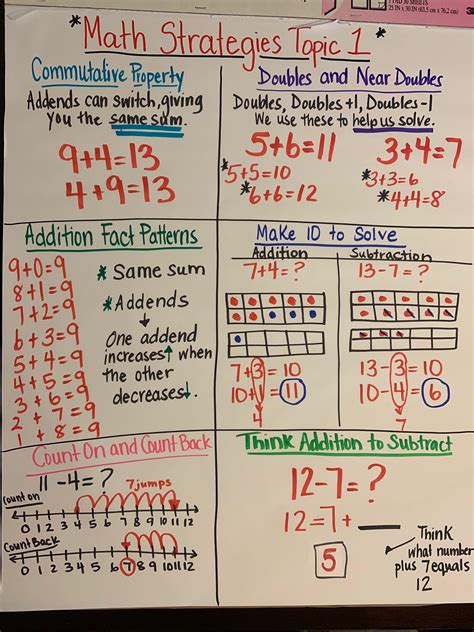 25 IN x 30 (63,5 cm x 76,2 cm)
*Math Strategies Topic 1*
Commutative Property
Addends can switch, giving
you the same sum.
9+4=13
4+9=13
Doubles and Near Doubles
Doubles, Doubles +1, Doubles-1
We use these to help us solve.
5+6=11
*5+5=10
*6+6=12
3+4=7
*3+3=6
*4+4=8
Addition Fact Patterns
9+0=9
8+1=9
7+2=9
6+3=9
5+4=9
4+5=9
3+6=9
2+7=9
1+8=9
* Same sum
* Addends
↓
One addend
increases↑ when
the other
decreases↓.
Make 10 to Solve
Addition
7+4=?
7+3=10
10+1=11
4
Subtraction
13-7=?
13-3=10
10-4=6
7
Count On and Count Back
11-4=?
7 jumps
Count on
0 1 2 3 4 5 6 7 8 9 10 11 12
Count Back
0 1 2 3 4 5 6 7 8 9 10 11 12
Think Addition to Subtract
12-7=?
12=7+__
5
Think
what number
plus 7 equals
12